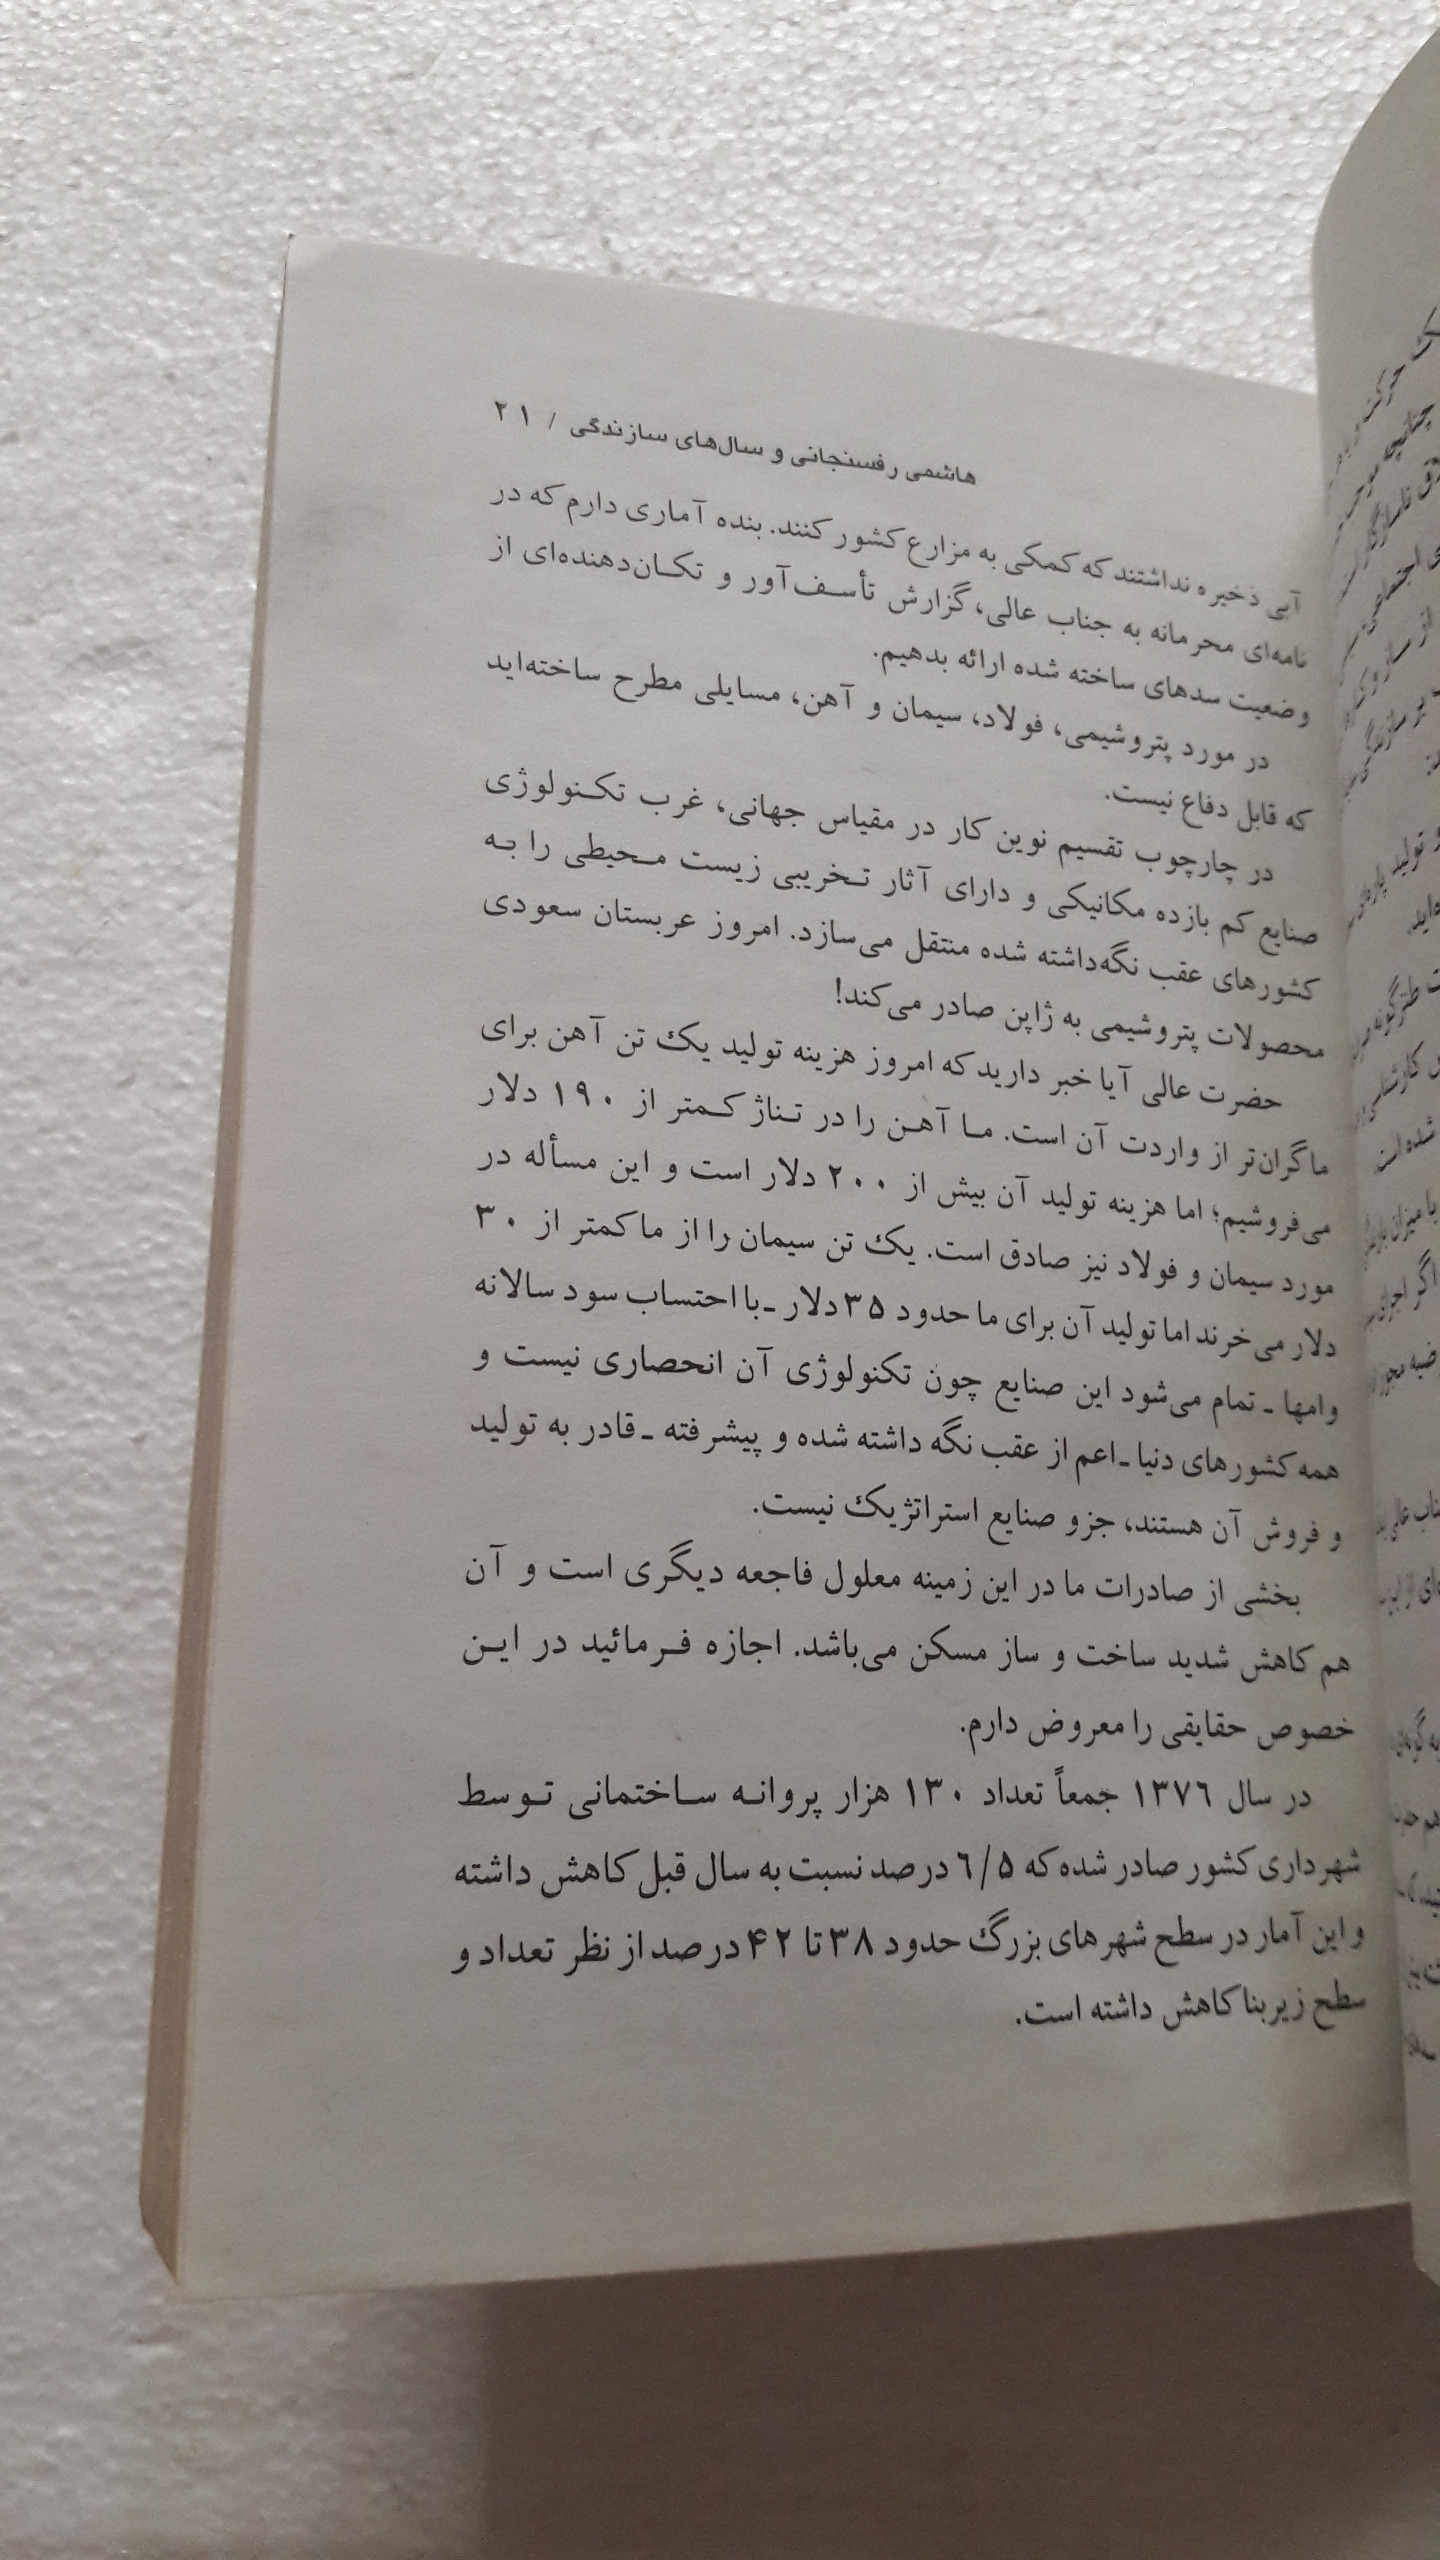 هاشمی رفسنجانی و سال‌های سازندگی / ۲۱
آبی ذخیره نداشتند که کمکی به مزارع کشور کنند. بنده آماری دارم که در
نامه‌ای محرمانه به جناب عالی، گزارش تأسف‌آور و تکان‌دهنده‌ای از
وضعیت سدهای ساخته شده ارائه بدهیم.
در مورد پتروشیمی، فولاد، سیمان و آهن، مسایلی مطرح ساخته‌اید
که قابل دفاع نیست.
در چارچوب تقسیم نوین کار در مقیاس جهانی، غرب تکنولوژی
صنایع کم بازده مکانیکی و دارای آثار تخریبی زیست محیطی را به
کشورهای عقب نگه‌داشته شده منتقل می‌سازد. امروز عربستان سعودی
محصولات پتروشیمی به ژاپن صادر می‌کند!
حضرت عالی آیا خبر دارید که امروز هزینه تولید یک تن آهن برای
ما گران‌تر از واردت آن است. ما آهن را در تناژ کمتر از ۱۹۰ دلار
می‌فروشیم؛ اما هزینه تولید آن بیش از ۲۰۰ دلار است و این مسأله در
مورد سیمان و فولاد نیز صادق است. یک تن سیمان را از ما کمتر از ۳۰
دلار می‌خرند اما تولید آن برای ما حدود ۳۵ دلار ـ با احتساب سود سالانه
وامها ـ تمام می‌شود این صنایع چون تکنولوژی آن انحصاری نیست و
همه کشورهای دنیا ـ اعم از عقب نگه داشته شده و پیشرفته ـ قادر به تولید
و فروش آن هستند، جزو صنایع استراتژیک نیست.
بخشی از صادرات ما در این زمینه معلول فاجعه دیگری است و آن
هم کاهش شدید ساخت و ساز مسکن می‌باشد. اجازه فرمائید در این
خصوص حقایقی را معروض دارم.
در سال ۱۳۷۶ جمعاً تعداد ۱۳۰ هزار پروانه ساختمانی توسط
شهرداری کشور صادر شده که ۶/۵ درصد نسبت به سال قبل کاهش داشته
و این آمار در سطح شهرهای بزرگ حدود ۳۸ تا ۴۲ درصد از نظر تعداد و
سطح زیربنا کاهش داشته است.